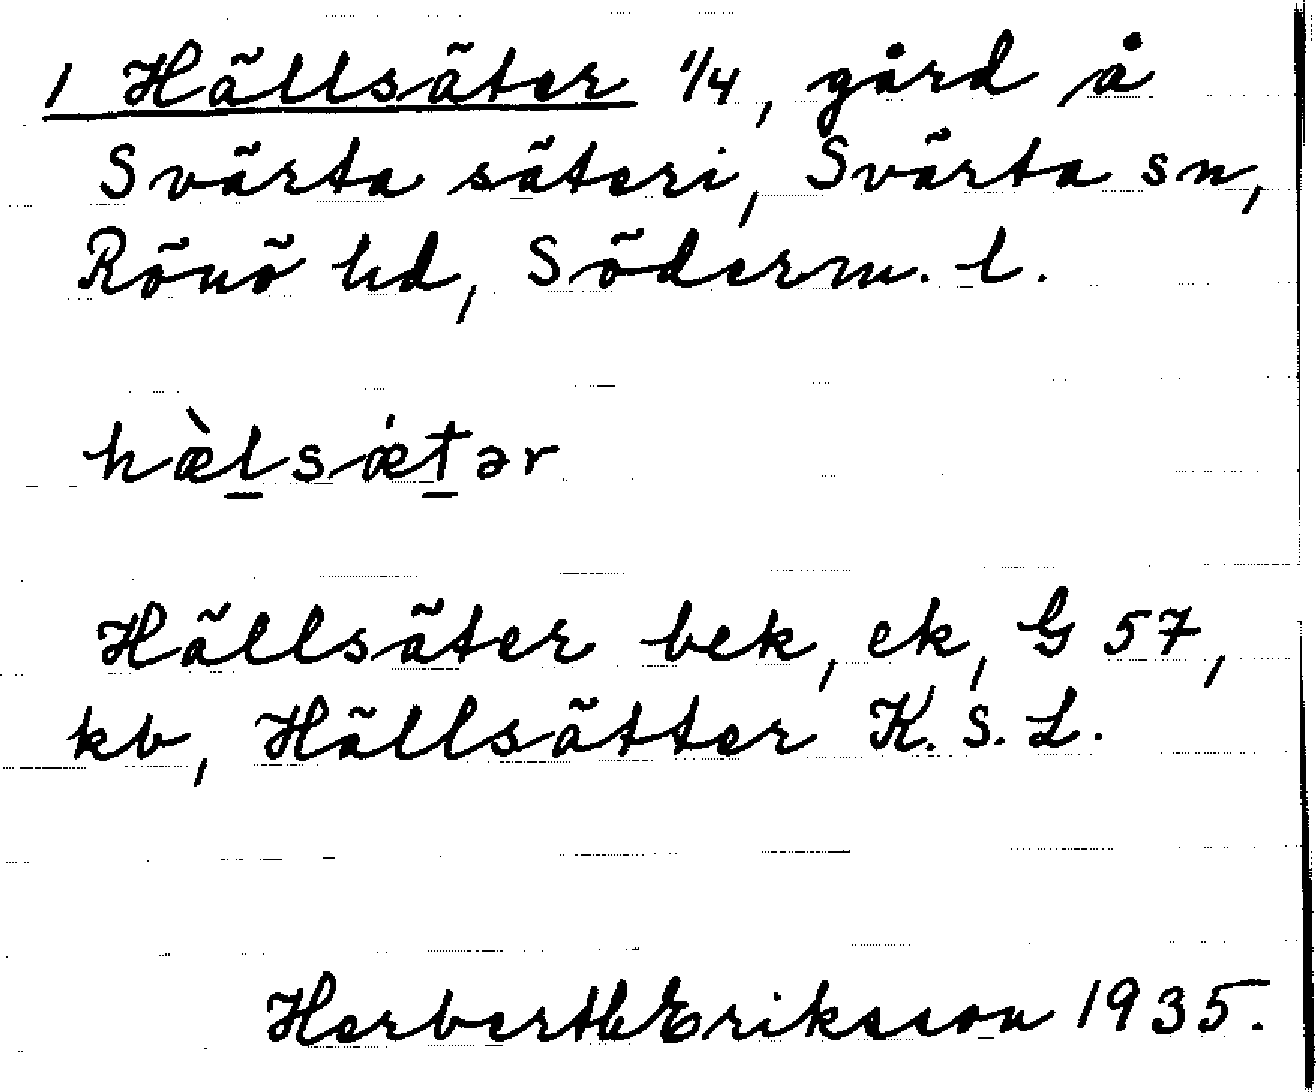 1 Hällsäter 1/4, gård å
Svärta säteri, Svärta sn,
Rönö hd, Söderm. l.
hæ̀l̲sǽt̲ər
Hällsäter bek, ek, G 57,
kb, Hällsätter K.S.L.
Herbert Eriksson 1935.